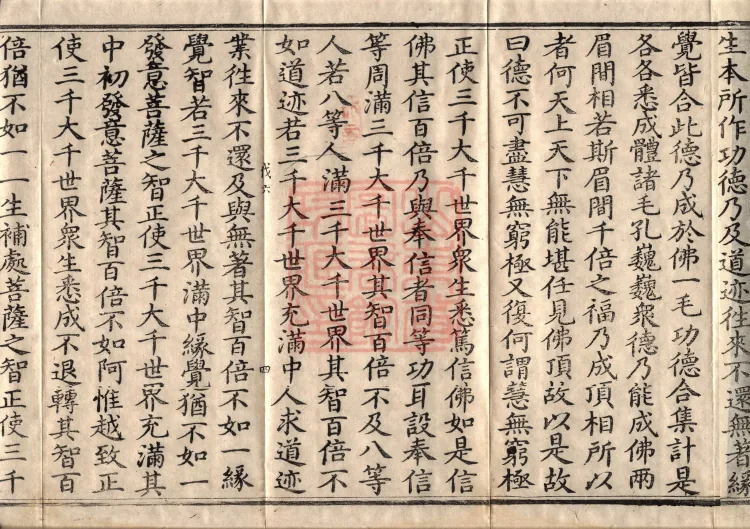 生本所作功德乃及道迹往來不還無著緣
覺皆合此德乃成於佛一毛功德合集計是
各各悉成體諸毛孔巍巍衆德乃能成佛兩
眉間相若斯眉間千倍之福乃成頂相所以
者何天上天下無能堪任見佛頂故以是故
曰德不可盡慧無窮極又復何謂慧無窮極
正使三千大千世界衆生悉篤信佛如是信
佛其信百倍乃與奉信者同等功耳設奉信
等周滿三千大千世界其智百倍不及八等
人若八等人滿三千大千世界其智百倍不
如道迹若三千大千世界充滿中人求道迹
伐六
四
業往來不還及與無著其智百倍不如一緣
覺智若三千大千世界滿中緣覺猶不如一
發意菩薩之智正使三千大千世界充滿其
中初發意菩薩其智百倍不如阿惟越致正
使三千大千世界衆生悉成不退轉其智百
倍猶不如一一生補處菩薩之智正使三千